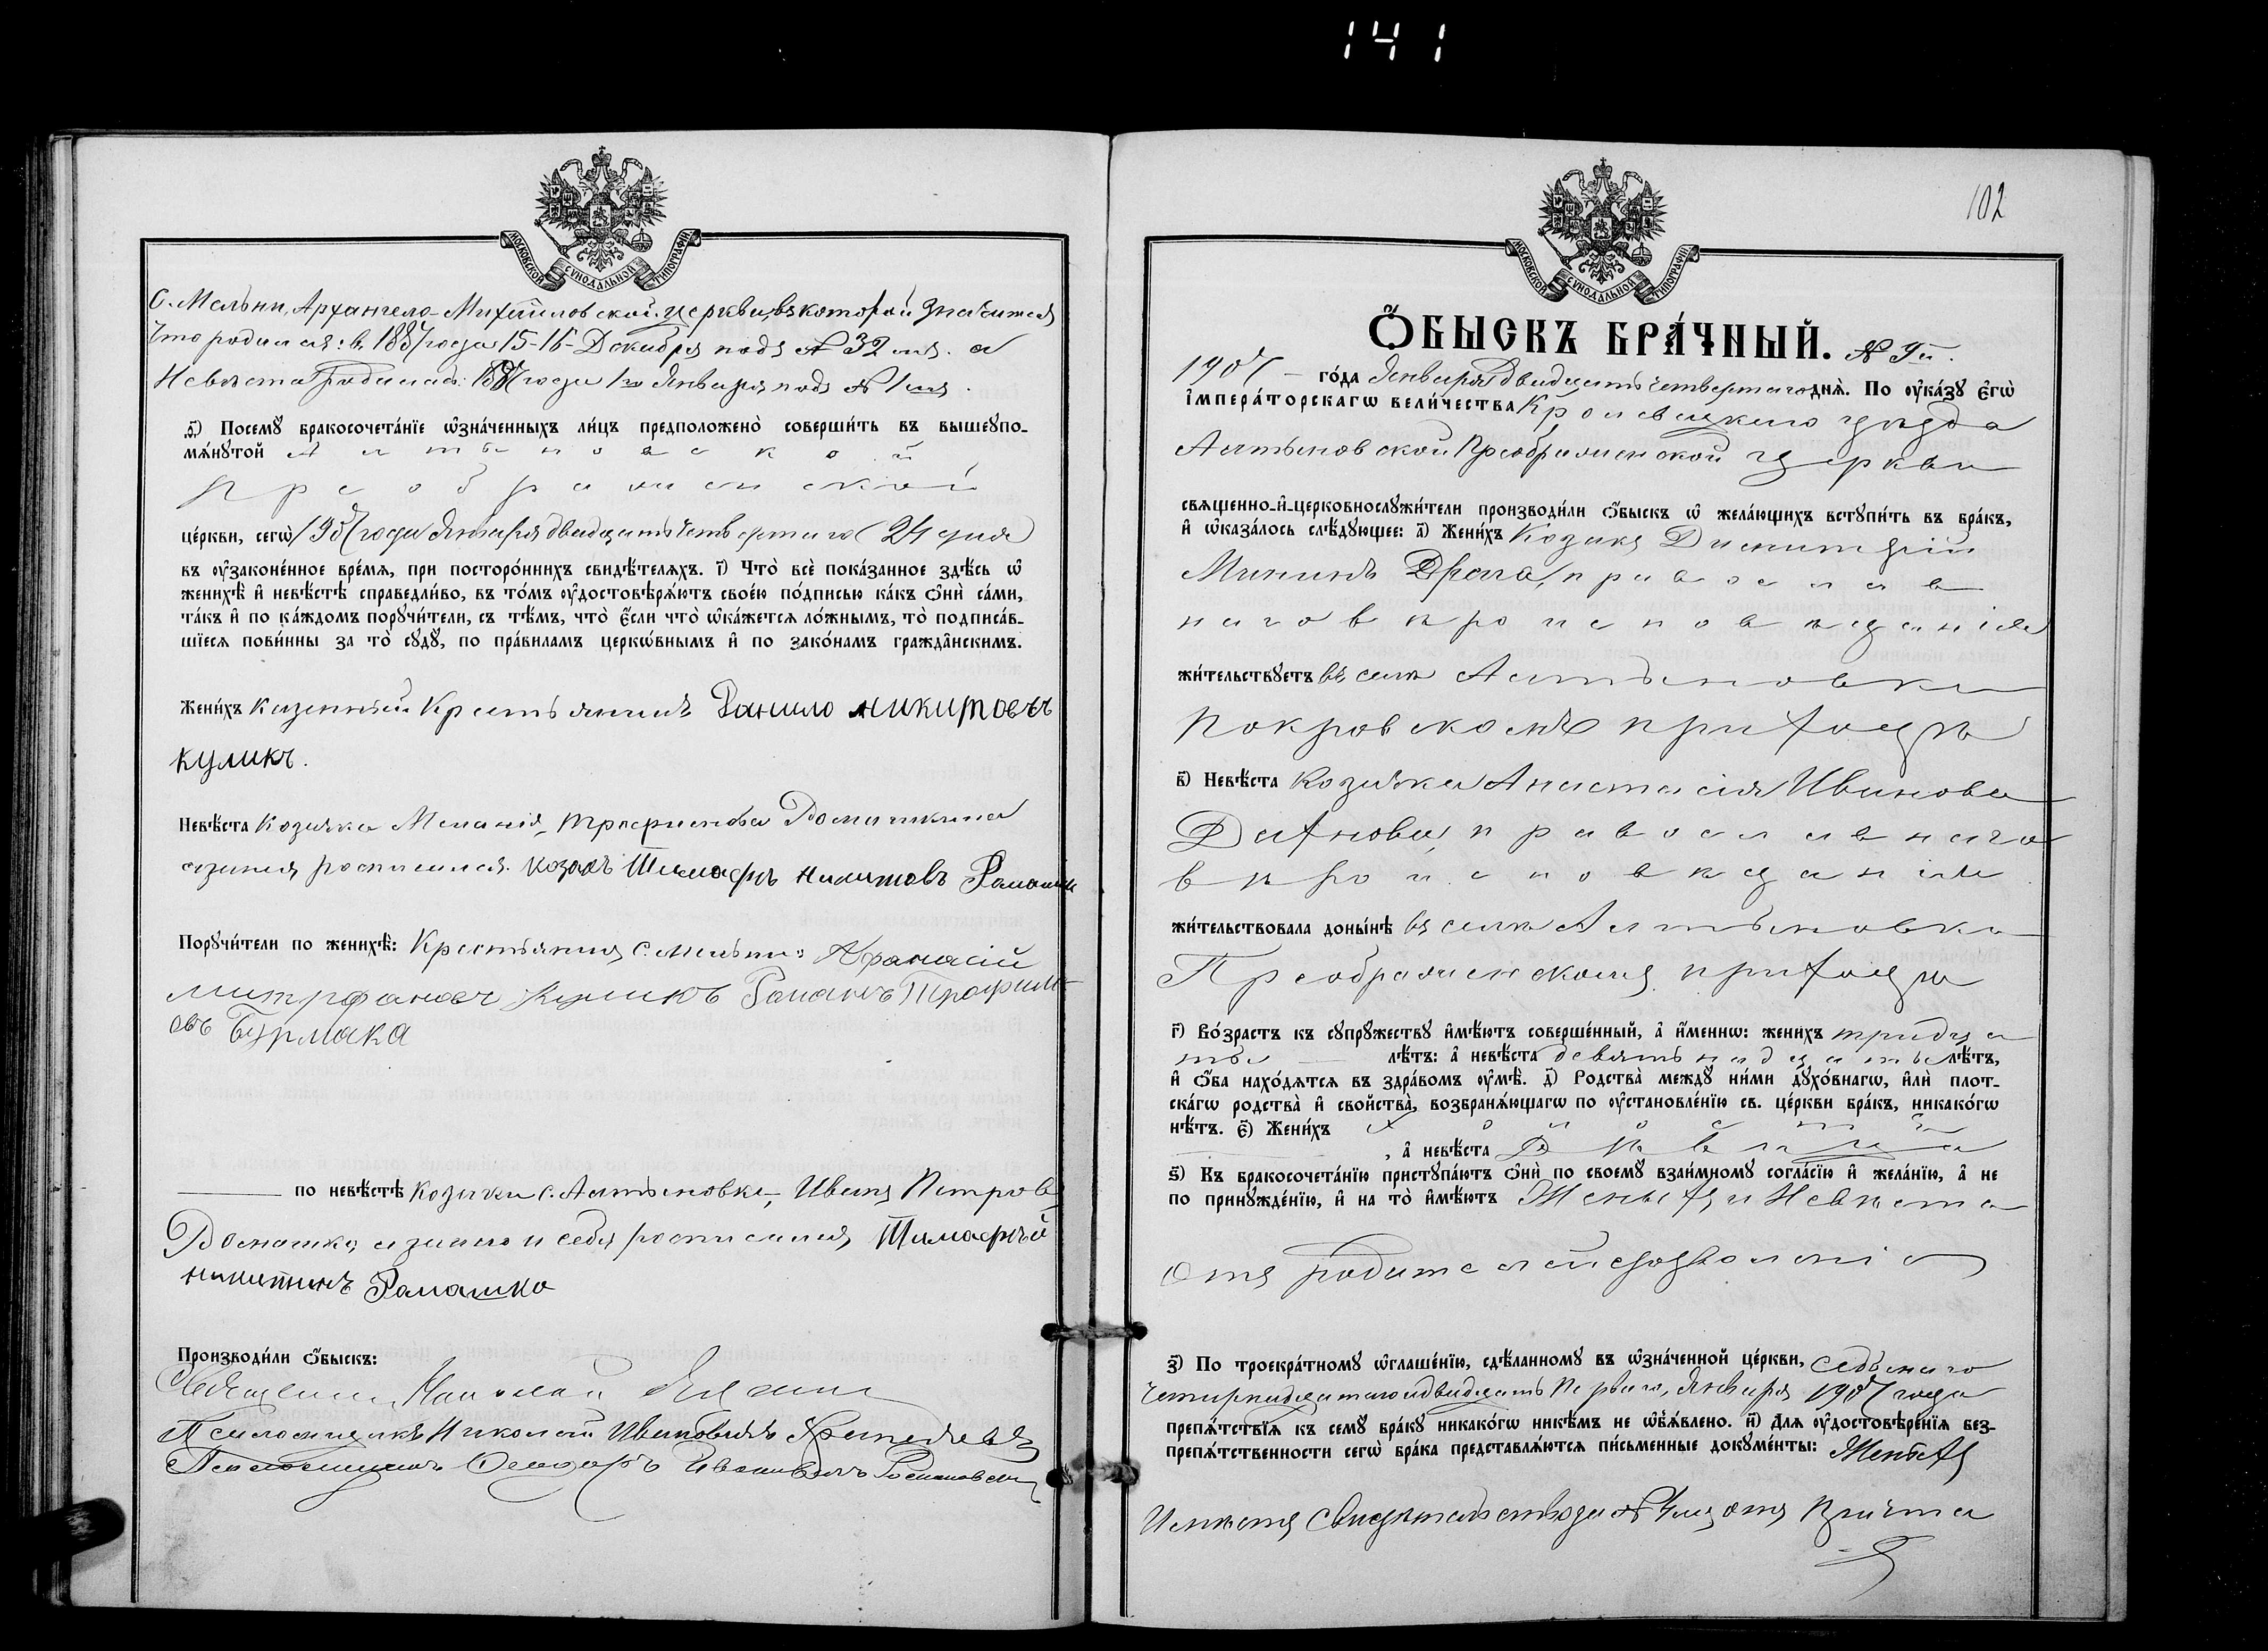 141
МОСКОВСКОЙ СѴНОДАЛЬНОЙ ТИПОГРАФІИ
С. Мельни, Архангело-Михайловской церкви, въ которой значится
что родился: въ 1887 года 15-16 Декабря подъ № 32 мъ. а
Невѣста родилась 1887 года 1го Января подъ № 1мъ.
ѳ҃) Посемꙋ̀ бракосочета́нїе ѡ҆зна́ченныхъ ли́цъ предположено̀ соверши́ть въ вышеꙋпо-
мѧ́нꙋтой Алтыновской
Преображенской
це́ркви, сегѡ̀ 1907 года Января двадцать четвертаго (24 дня)
въ ᲂу҆законе́нное вре́мѧ, при посторо́ннихъ свидѣ́телѧхъ. і҃) Что̀ всѐ пока́занное здѣ́сь ѡ҆
женихѣ̀ и҆ невѣ́стѣ справедли́во, въ то́мъ ᲂу҆достовѣрѧ́ютъ свое́ю по́дписью ка́къ ѻ҆нѝ са́ми,
та́къ и҆ по ка́ждомъ порꙋчи́тели, съ тѣ́мъ, что̀ є҆́сли что̀ ѡ҆ка́жетсѧ ло́жнымъ, то̀ подписа́в-
шїесѧ пови́нны за то̀ сꙋдꙋ̀, по пра́виламъ церкѡ́внымъ и҆ по зако́намъ гражда̂нскимъ.
Жени́хъ казенный Крестьянинъ Данило Никитовъ
Куликъ.
Невѣ́ста Козачка Меланія Трофимова Ромашкина
а за нея росписался козакъ Тимофѣ Никитовъ Рамашк
Порꙋчи́тели по женихѣ̀: Крестьянинъ с. Мельни: Афанасій
Митрофановъ Куликъ Раманъ Трофим-
овъ Бурмака
по невѣ́стѣ Козаки с. Алтыновки, Иванъ Петровъ
Ромашко, а за него и себя росписался, Тимофѣй
Никитинъ Рамашко
Производи́ли ѻ҆́быскъ:
Священникъ Николай
Псаломщикъ Николай Ивановичъ
Псаломщикъ Ѳеодоръ Ивановичъ Романовскі
102
МОСКОВСКОЙ СѴНОДАЛЬНОЙ ТИПОГРАФІИ
Ѻ҆́БЫСКЪ БРА́ЧНЫЙ. № 9й.
1907 – го́да Января двадцать четвертаго днѧ̀. По ᲂу҆ка́зꙋ є҆гѡ̀
і҆мпера́торскагѡ вели́чества Кролевецкаго уѣзда
Алтыновской Преображенской церкви
свѧщенно-и҆-церковнослꙋжи́тели производи́ли ѻ҆́быскъ ѡ҆ жела́ющихъ встꙋпи́ть въ бра́къ,
и҆ ѡ҆каза́лось слѣ́дꙋющее: а҃) Жени́хъ Козакъ Димитрій
Мининъ Драга, православ
наго вѣроисповѣданія
жи́тельствꙋетъ въ селѣ Алтыновки
Покровскомъ приходѣ
в҃) Невѣ́ста Козачка Анастасія Иванова
Дахнова, православнаго
вѣроисповѣданія
жи́тельствовала доны́нѣ въ селѣ Алтыновки
Преображенскомъ приходѣ
г҃) Во́зрастъ къ сꙋпрꙋ́жествꙋ и҆мѣ́ютъ соверше́нный, а҆̀ и҆́меннѡ: жени́хъ тридца
ть лѣ́тъ: а҆̀ невѣ́ста девятнадцать лѣ́тъ,
и҆ ѻ҆́ба нахо́дѧтсѧ въ здра́вомъ ᲂу҆мѣ̀. д҃) Родства̀ междꙋ̀ ни́ми дꙋхо́внагѡ, и҆лѝ плот-
ска́гѡ родства̀ и҆ свойства̀, возбранѧ́ющагѡ по ᲂу҆становле́нїю св. це́ркви бра́къ, никако́гѡ
нѣ́тъ. є҃) Жени́хъ Холостой
, а҆̀ невѣ́ста Дѣвица
ѕ҃) Къ бракосочета́нїю пристꙋпа́ютъ ѻ҆нѝ по своемꙋ̀ взаи́мномꙋ согла́сїю и҆ жела́нїю, а҆̀ не
по принꙋжде́нїю, и҆ на то̀ и҆мѣ́ютъ Женихъ и Невѣста
отъ родителей дозволенія
з҃) По троекра́тномꙋ ѡ҆глаше́нїю, сдѣ́ланномꙋ въ ѡ҆зна́ченной це́ркви, седьмаго
четырнадцатаго и двадцать перваго, Января 1907 года
препѧ́тствїѧ къ семꙋ̀ бра́кꙋ никако́гѡ никѣ́мъ не ѡ҆б̾ѧ́влено. и҃) Длѧ̀ ᲂу҆достовѣре́нїѧ без-
препѧ́тственности сегѡ̀ бра́ка представлѧ́ютсѧ пи́сьменные докꙋме́нты: Женихъ
Имѣетъ Свидѣтельство за № 4мъ отъ Причта